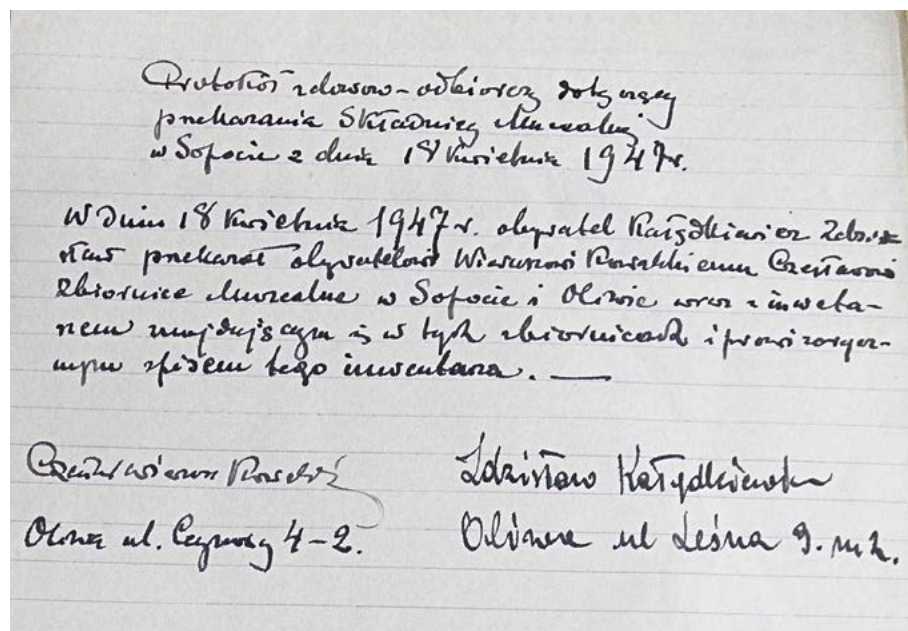 Protokół zdawczo-odbiorczy dotyczący
przekazania Składnicy Muzealnej
w Sopocie z dnia 18 kwietnia 1947 r.
W dniu 18 kwietnia 1947 r. obywatel Kałędkiewicz Zdzi-
sław przekazał obywatelowi Wierusz Kowalskiemu Czesławowi
Zbiornice Muzealne w Sopocie i Oliwie wraz z inwenta-
rzem znajdującym się w tych zbiornicach i prowizorycz-
nym spisem tego inwentarza. —
Czesław Wierusz Kowalski
Oliwa ul. 4-2.
Zdzisław
Oliwa ul Leśna 9. m 2.